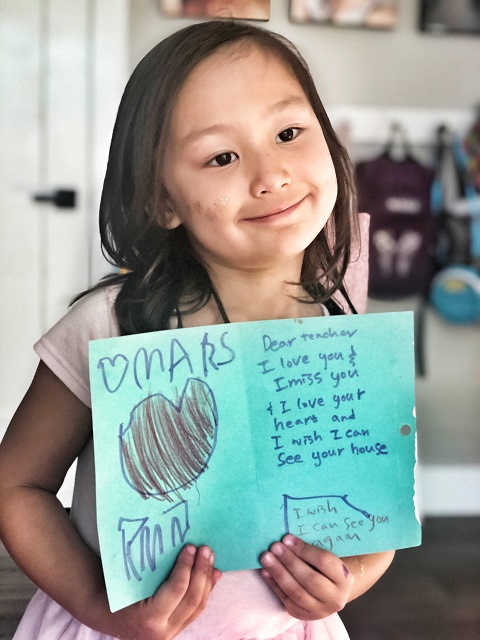 ♡ MARS
Dear teacher
I love you &
I miss you
& I love your
heart and
I wish I can
see your house
I wish
I can see you
again